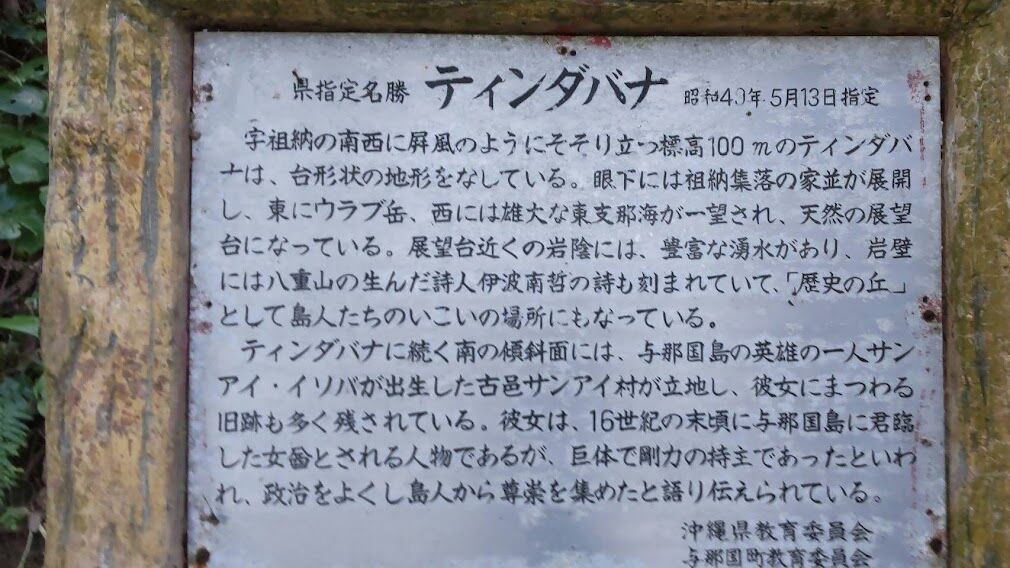 県指定名勝 ティンダバナ 昭和49年5月13日指定
字祖納の南西に屛風のようにそそり立つ標高100mのティンダバ
ナは、台形状の地形をなしている。眼下には祖納集落の家並が展開
し、東にウラブ岳、西には雄大な東支那海が一望され、天然の展望
台になっている。展望台近くの岩陰には、豊富な湧水があり、岩壁
には八重山の生んだ詩人伊波南哲の詩も刻まれていて、「歴史の丘」
として島人たちのいこいの場所にもなっている。
ティンダバナに続く南の傾斜面には、与那国島の英雄の一人サン
アイ・イソバが出生した古邑サンアイ村が立地し、彼女にまつわる
旧跡も多く残されている。彼女は、16世紀の末頃に与那国島に君臨
した女酋とされる人物であるが、巨体で剛力の持主であったといわ
れ、政治をよくし島人から尊崇を集めたと語り伝えられている。
沖縄県教育委員会
与那国町教育委員会